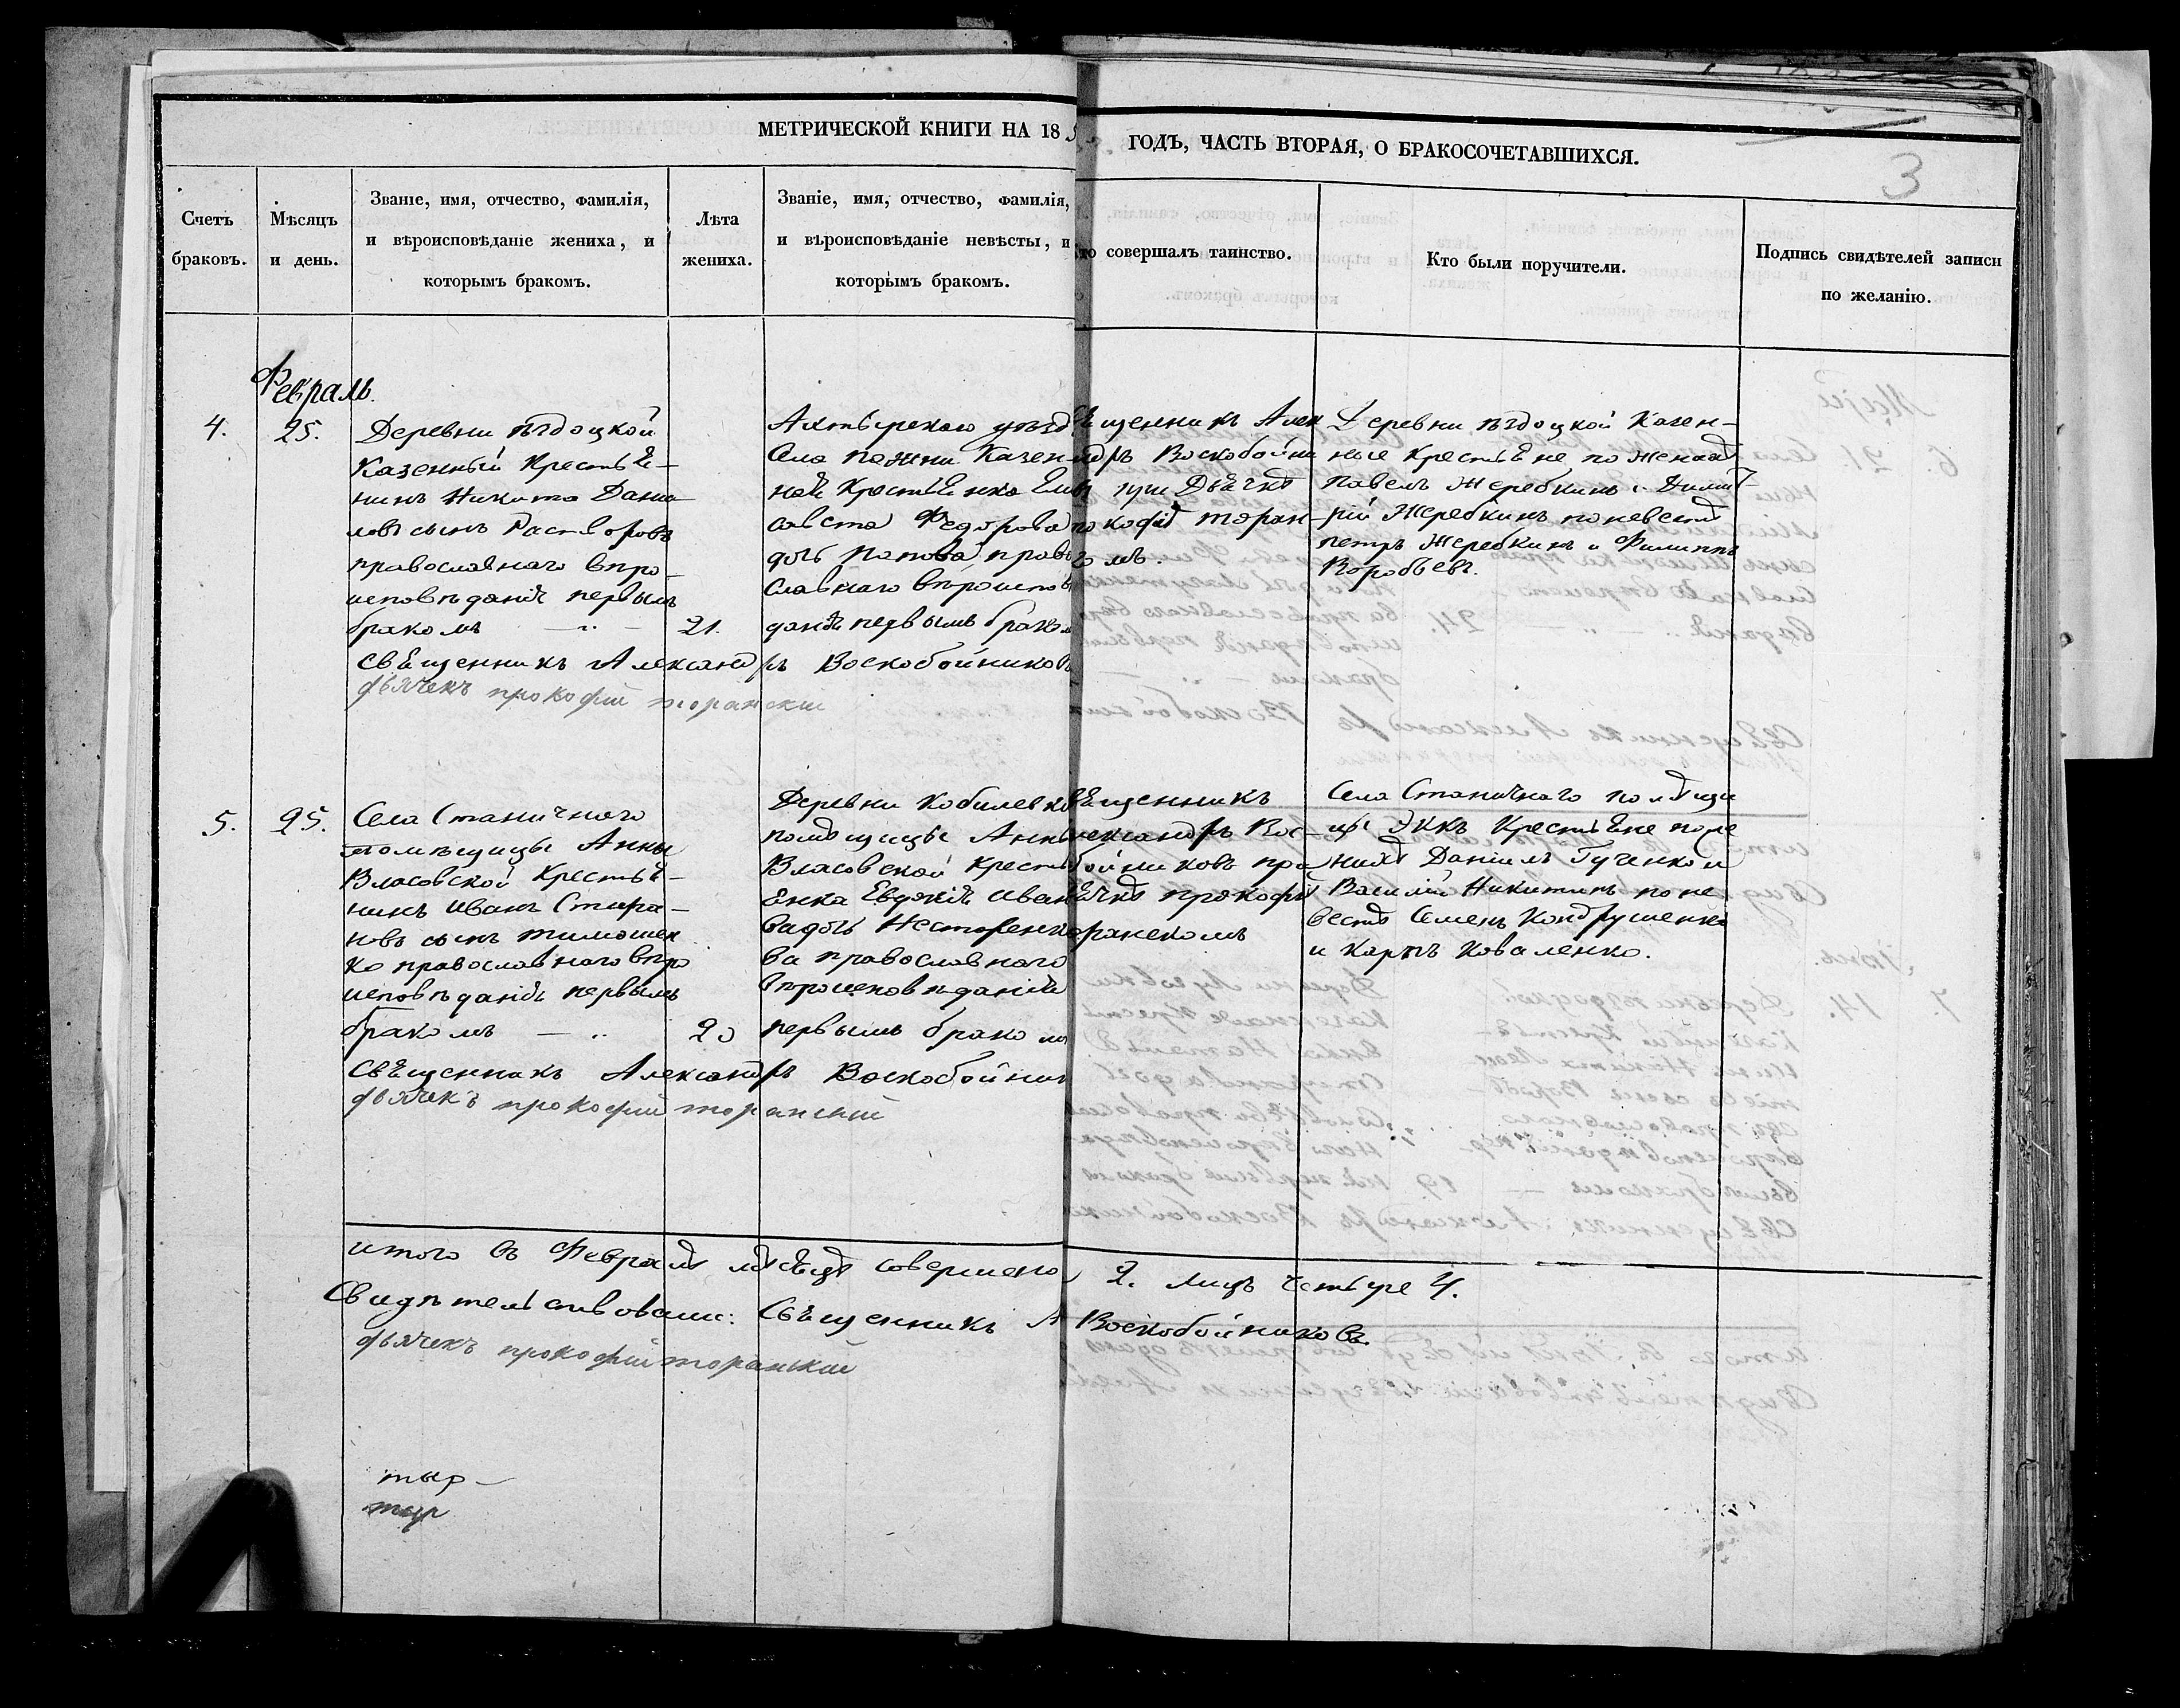 МЕТРИЧЕСКОЙ КНИГИ НА 18
ГОДЪ, ЧАСТЬ ВТОРАЯ, О БРАКОСОЧЕТАВШИХСЯ.
3
Счетъ
браковъ.
Мѣсяцъ
и день.
Званіе, имя, отчество, фамилія,
и вѣроисповѣданіе жениха, и
которымъ бракомъ.
Лѣта
жениха.
Званіе, имя, отчество, фамилія,
и вѣроисповѣданіе невѣсты, и
которымъ бракомъ.
то совершалъ таинство.
Кто были поручители.
Подпись свидѣтелей записи
по желанію.
Февраль.
4.
25.
Деревни
Казенный Крестья-
нинъ Никита Дани-
ловъ сынъ Растворовъ
православнаго впро-
исповѣданія первымъ
бракомъ
21.
Ахтырскаго уѣзд
Села Казен-
ная Крестьянка Ели
савета Федорова
дочь Попова право
славнаго впроиспов
данія первымъ браком
щенникъ Алек
ндръ Воскобойни
при Дьячкѣ
покофіѣ торан-
Деревни Казен-
ные Крестьяне по Женихѣ
Павелъ Жеребкинъ и Дими-
рій Жеребкинъ поневестѣ
петръ Жеребкинъ и Филиппъ
Воробьевъ.
Священникъ Александръ Воскобойниковъ
дьячекъ прокофій торанскій
5.
25.
Села Станичнаго
помѣщицы Анны
Власовской Крестья-
нинъ Иванъ
новъ сынъ тимошен
ко православнаго впро
исповѣданія первымъ
бракомъ
20
Деревни
помѣщицы Анны
Власовской Крестья
янка Евдокія Иван
ва дочь Нестеренко
ва православнаго
впроисповѣданія
первымъ браком
ященникъ
лександръ Вос-
бойниковъ при
ячкѣ прокофіѣ
оранскомъ
Села Станичнаго помѣщи
цы Крестьяне по же
нихѣ Даніилъ Гученко и
Василій Никитинъ по не
вестѣ Семенъ Кондрушенко
и Карпъ Коваленко.
Священникъ Александръ Воскобойник
дьячекъ прокофій торанский
итого въ Февралѣ мѣсяцѣ совершено 2. лицъ четыре 4.
Свидѣтельствовали: Священникъ А Воскобойниковъ
дьячекъ прокофій торанский